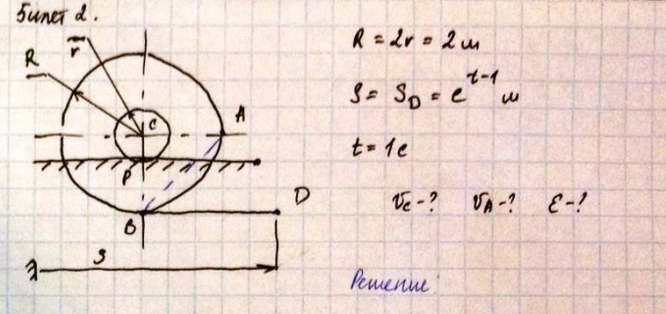 Билет 2.
r
R
R = 2r = 2 м
C
A
S = S_D = e^{t-1} м
P
t = 1 c
B
D
v_C - ? v_A - ? ε - ?
S
Решение: